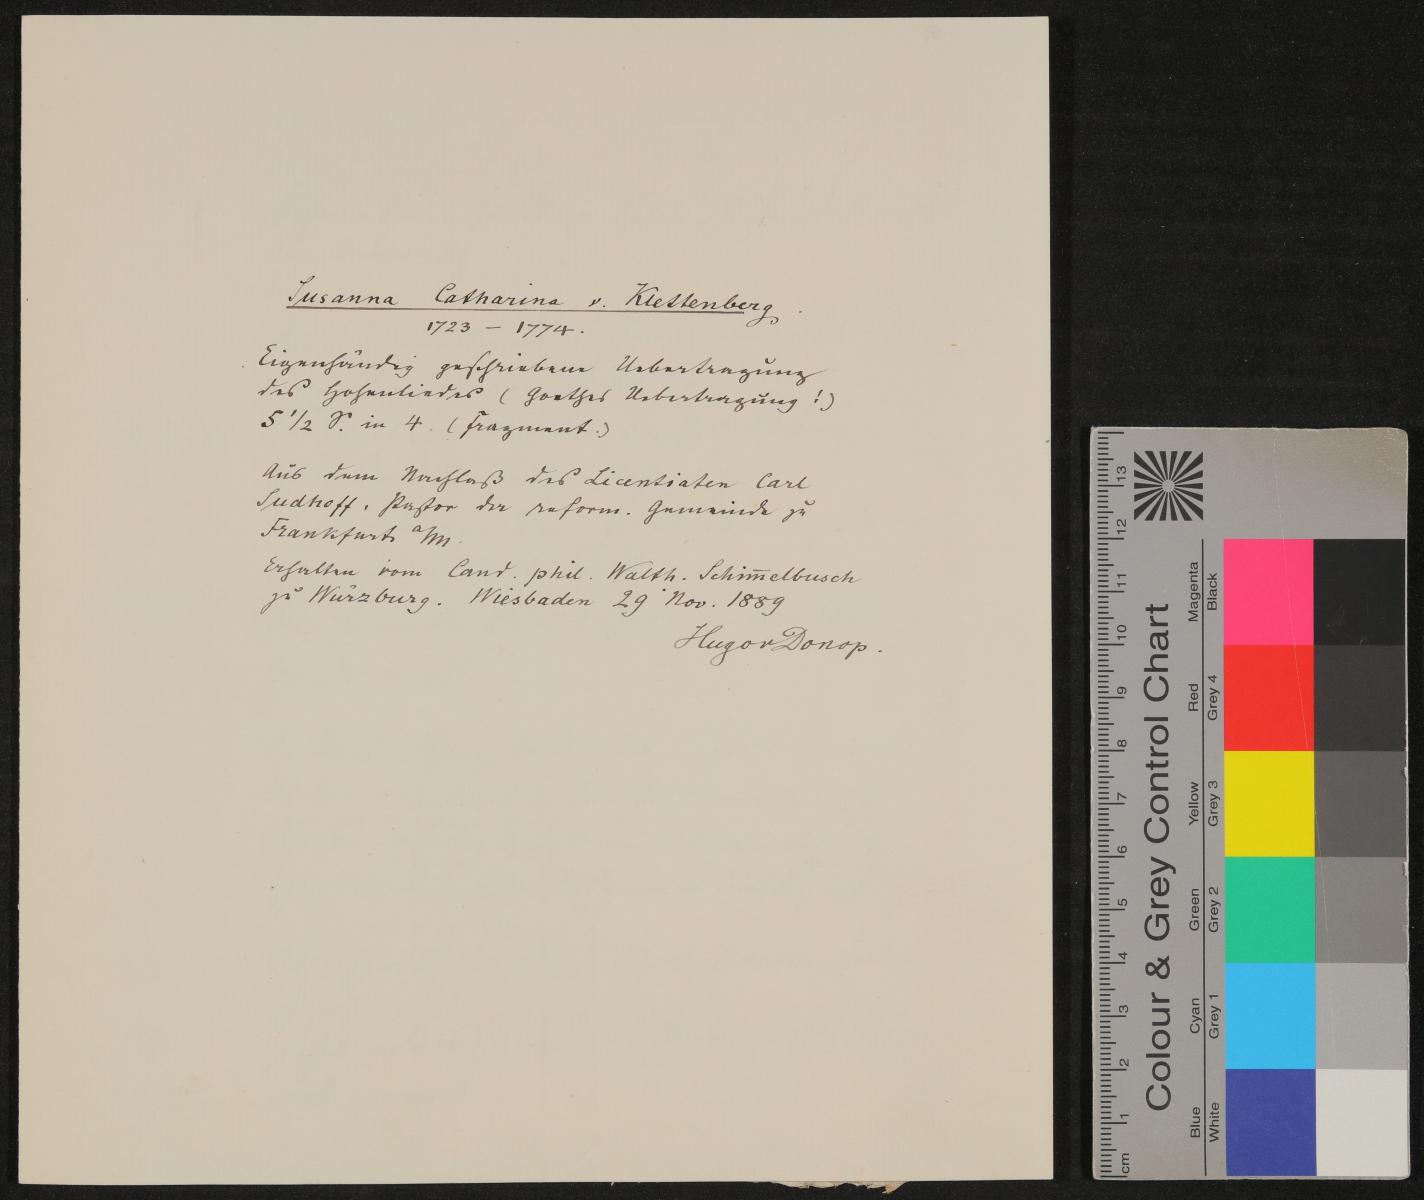 Susanna Catharina v. Klettenberg.
1723 – 1774.
Eigenhändig geschriebene Uebertragung
des Hohenliedes (Goethes Uebertragung!)
5 1/2 S. in 4. (Fragment.)
Aus dem Nachlaß des Licentiaten Carl
Sudhoff, Pastor der reform. Gemeinde zu
Frankfurt a/M.
Erhalten vom Cand. phil. Walth. Schim̅elbusch
zu Würzburg. Wiesbaden 29 Nov. 1889
Hugo v Donop.
Colour & Grey Control Chart
Blue Cyan Green Yellow Red Magenta
White Grey 1 Grey 2 Grey 3 Grey 4 Black
cm 1 2 3 4 5 6 7 8 9 10 11 12 13